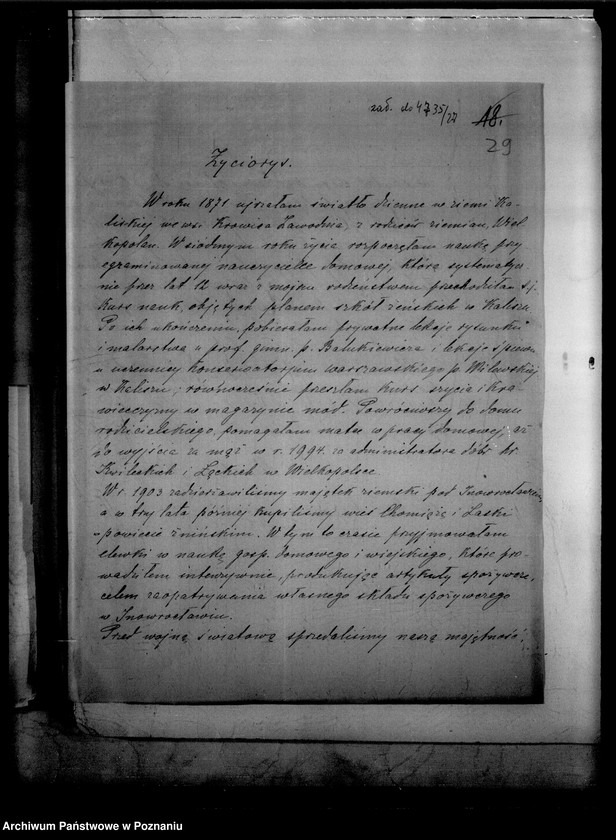 zał. do 4735/27
18.
29
Życiorys.
W roku 1871 ujrzałam światło dzienne w ziemi Ka-
liskiej we wsi Krowica Zawodnia, z rodziców ziemian, Wiel-
kopolan. W siódmym roku życia rozpoczęłam naukę przy
egzaminowanej nauczycielce domowej, którą systematycz
nie przez lat 12 wraz z mojem rodzeństwem przechodziłam t.j.
kurs nauk, objętych planem szkół żeńskich w Kaliszu.
Po ich ukończeniu, pobierałam prywatne lekcje rysunku
i malarstwa u prof. gimn. p. Batukiewicza i lekcje śpiewu
u uczennicy konserwatorjum warszawskiego p. Milewskiej
w Kaliszu; równocześnie przeszłam kurs szycia i kra-
wiecczyzny w magazynie mód. Powróciwszy do domu
rodzicielskiego, pomagałam matce w pracy domowej, aż
do wyjścia za mąż w r. 1994. za administratora dóbr hr.
Kwileckich i Łąckich w Wielkopolsce
W r. 1903 zadzierżawiliśmy majątek ziemski pod Inowrocławiem
a w trzy lata później kupiliśmy wieś Chomiążę i Laski
powiecie żnińskim. W tym to czasie przyjmowałam
elewki w naukę gosp. domowego i wiejskiego, które pro-
wadziłam intenzywnie, produkując artykuły spożywcze,
celem zaopatrywania własnego składu spożywczego
w Inowrocławiu.
Przed wojną światową sprzedaliśmy naszą majętność,
Archiwum Państwowe w Poznaniu